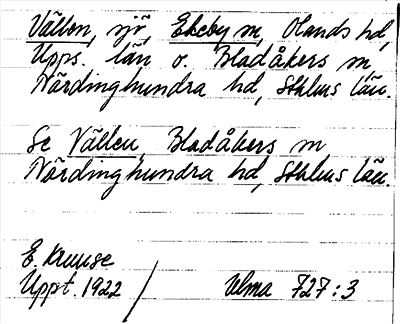 Vällen, sjö, Ekeby sn, Olands hd,
Upps. län o. Bladåkers sn
Närdinghundra hd, Sthlms län.
Se Vällen, Bladåkers sn
Närdinghundra hd, Sthlms län.
E. Kruuse
Uppt. 1922 / Ulma 727:3